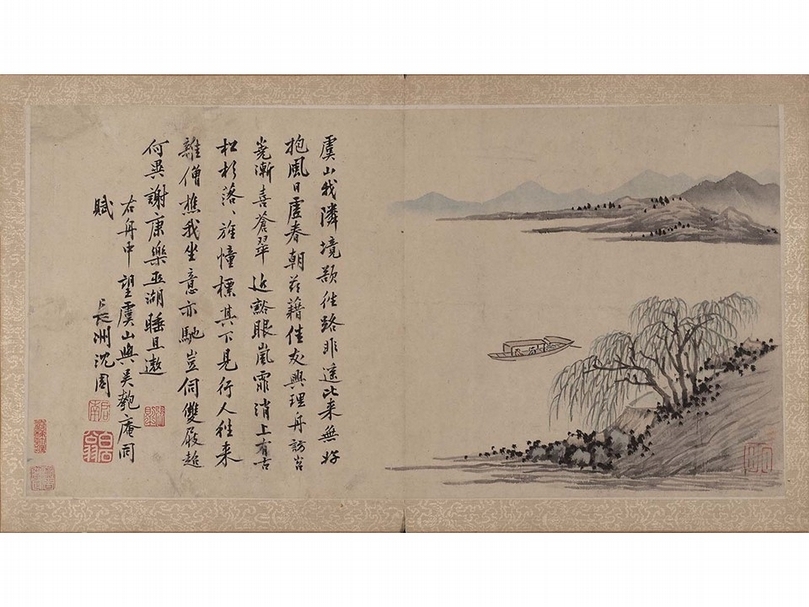 虞山我隣境願往路非遙比来無好
抱風日虛春朝兹藉佳友興理舟訪岧
嶤漸喜蒼翠近豁眼嵐霏消上有古
松杉落〻旌幢標其下見行人往来
雜僧樵我坐意亦馳豈伺雙屐超
何異謝康樂巫湖睡且遨
右舟中望虞山與吳匏庵同
賦
長洲沈周
啟南
白石翁